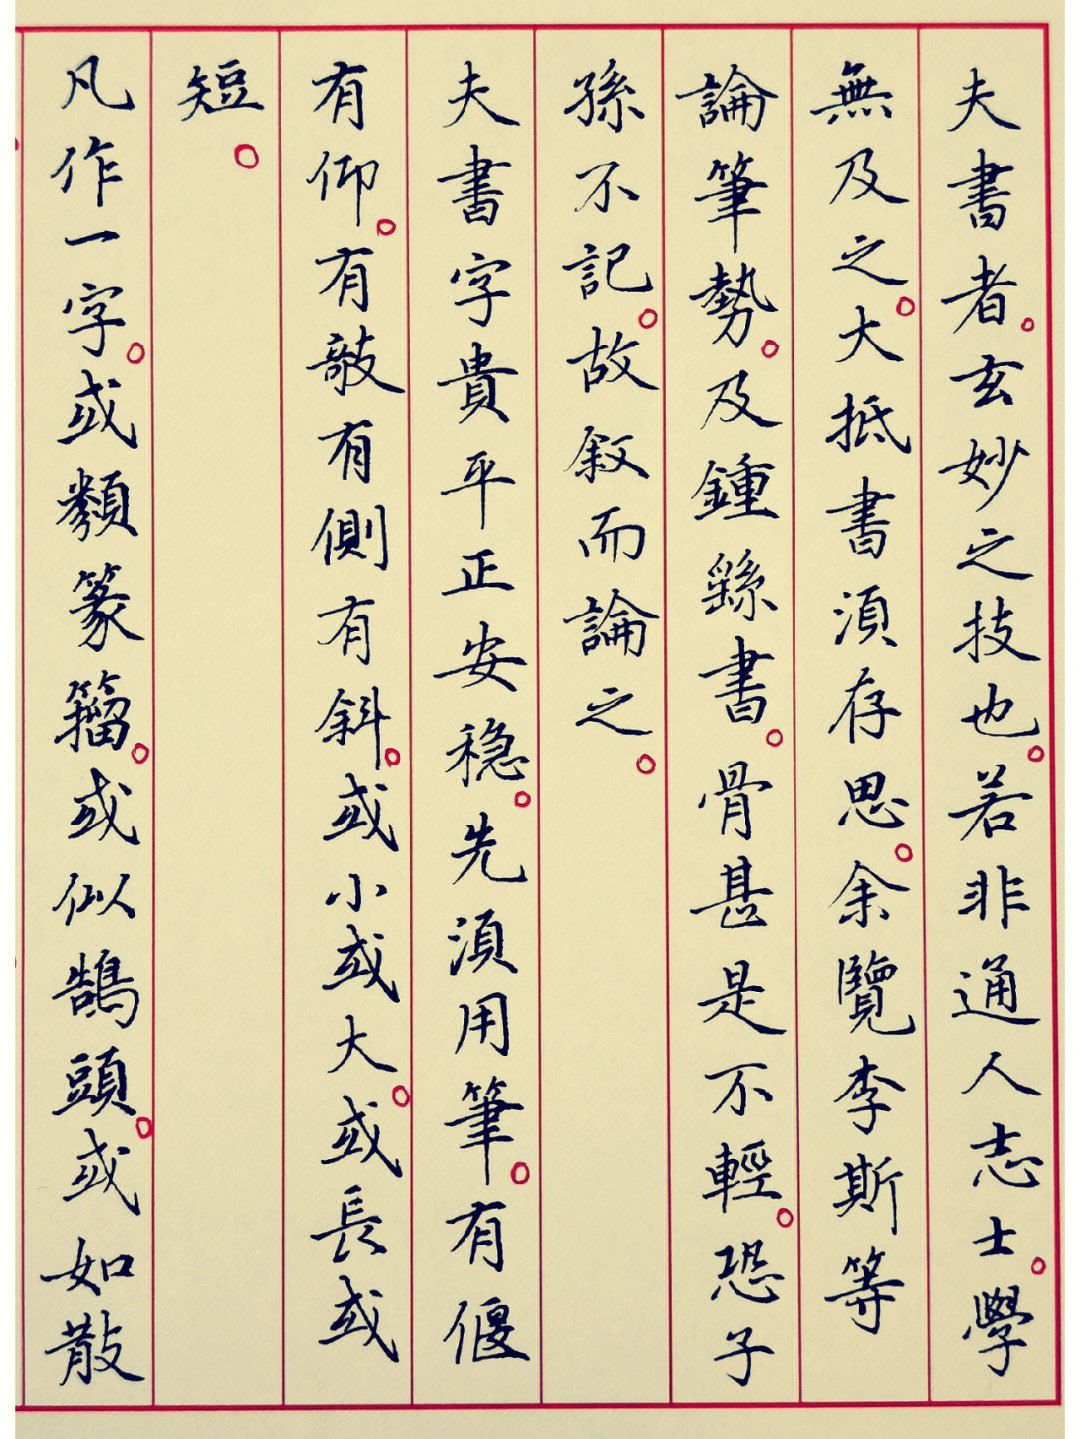 夫書者。玄妙之技也。若非通人志士。學
無及之。大抵書須存思。余覽李斯等
論筆勢。及鍾繇書。骨甚是不輕。恐子
孫不記。故敘而論之。
夫書字貴平正安穩。先須用筆。有偃
有仰。有敧有側有斜。或小或大。或長或
短。
凡作一字。或類篆籀。或似鵠頭。或如散